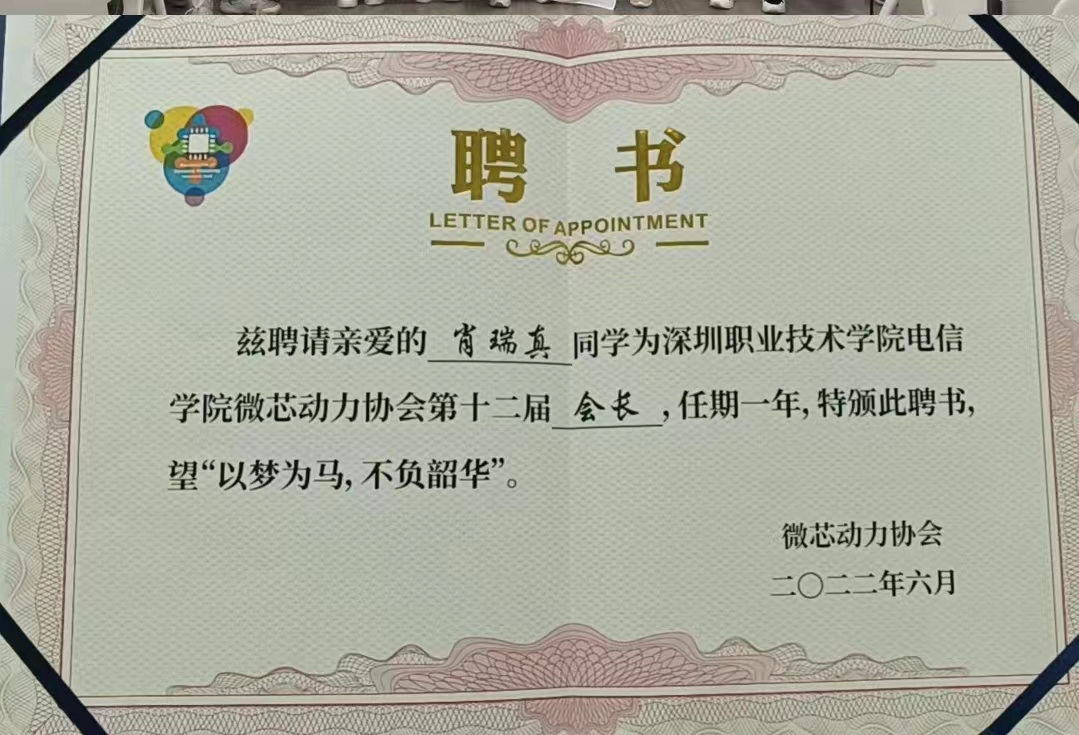 聘 书
LETTER OF APPOINTMENT
兹聘请亲爱的 肖瑞真 同学为深圳职业技术学院电信
学院微芯动力协会第十二届 会长 ,任期一年,特颁此聘书,
望“以梦为马,不负韶华”。
微芯动力协会
二〇二二年六月